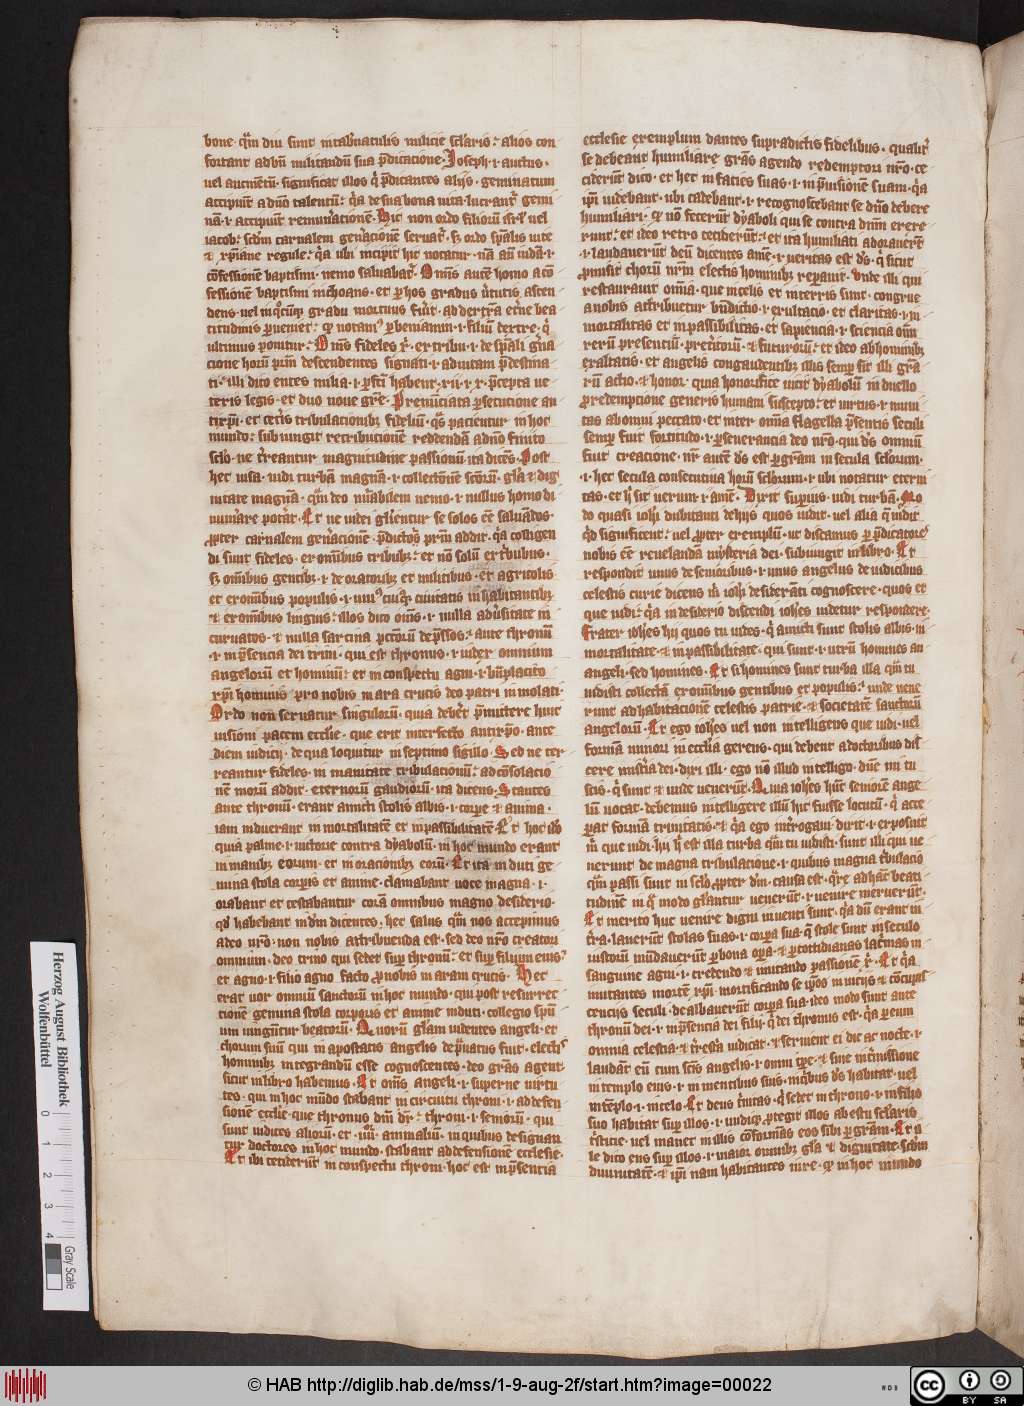 bone · qm̄ diu sunt in tab̄naculis milicie sc̄laris : alios con
fortant ad bn̄ militandum sua p̄dicatione · Joseph · i · auctus ·
vel augmētū · significat illos q̄ p̄dicantes aliis · geminatum
accipiunt a dn̄o talentū : q̄a de sua bona vita lucrant̄ gemi
nā · i · accipiunt remun̄acionem · Hic non ordo filiorū isrl̄ vel
iacob : scd̄m carnalem gen̄acionē servat̄ · sꝫ ordo sp̄alis vite
et xp̄iane regule : q̄a ubi incipit hic notatur · nā an̄ iudā · i ·
cōfessionē baptismi · nemo salvabat̄ · Omīs autē homo a cō
fessionē baptismi inchoans · et p̄ hos gradus v̄tutis ascen
dens · vel in q̄cūqꝫ gradu mortuus fūit · ad dexterā et̄ne bea
titudinis p̄veniet : qd̄ notam᷒ p̄ beniamin · i · filiū dextre · q̄
ultimus ponitur : Omīs fideles
cione horū p̄m descendentes signati · i · ad vitam p̄destina
ti : illi dico
teris legis · et duo nove gr̄e · Prenūciata p̄secutione an
tixp̄i · et ceteris tribulacionibꝫ fidelium · qs̄ pacientur in hoc
mundo : sub iungit retribucionē reddendā a dn̄o finito
sc̄lo · ne t̄reantur magnitudine passionū ita dicēs · Post
hec visa · vidi turbā magnā · i · collectōnē scōrū · gl̄a et dig
nitate magnā · qm̄ deo mirabilem nemo · i · nullus homo di
numerare pot̄at · Et ne videri gl̄ientur se solos eē salvādos ·
ꝓpter carnalem gen̄acionē · p̄dictoꝫ p̄m addit · q̄a colligen
di sunt fideles · ex om̄ibus tribubꝫ : et nō solū ex t̄bubus ·
sꝫ om̄ibus gentibꝫ · i · de oratoribꝫ et militibus · et agricolis
et ex om̄ibus populis · i · uni᷒ cuiqꝫ civitatis inhabitantibꝫ
et ex om̄ibus linguis : illos dico om̄s · i · nulla adv̄sitate in
curvatos · et nulla sarcina pctōrū dep̄ssos : ante thronū
· i · in p̄sencia dei trini · qui est thronus · i · iudex omnium
angelorū et hominū : et in conspectu agni · i · bn̄placito
xp̄i hominis · pro nobis in ara crucis deo patri inmolati ·
Ordo non servatur singulorū · quia debet p̄mittere huic
visioni pacem ecclīe · que erit interfecto antixp̄o · ante
diem iudicii · de qua loquitur in septimo sigillo · Sed ne ter
reantur fideles in inanitate tribulationū : ad cōsolacio
nē morū addit · eternorū gaudiorū · ita dicens · Stantes
ante thronū · erant amicti stolis albis · i · corꝑe et anima ·
iam induerant inmortalitatē et inpassibilitatē · Et hoc ido
quia palme · i · victorie contra dyabolū · in hoc mundo erant
in manibꝫ eorum · et in oracionibꝫ eorū · Et ita induti ge
mina stola corꝑis et anime · clamabant voce magna · i ·
orabant et testabantur corā omnibus magno desiderio ·
qd̄ habebant in dn̄m dicentes · hec salus qm̄ nos accepimus
a deo nr̄o · non nobis attribuenda est · sed deo nr̄o creatori
omnium · deo trino qui sedet sup̄ thronū : et sup̄ filium eius᷒
et agno · i · filio agno facto ꝓ nobis in aram crucis · Hec
erat vox omniū sanctorū in hoc mundo · qui post resurrec
tionē gemina stola corporis et anime induti · collegio sp̄ū
um iunguntur beatorū · Quorū gl̄am videntes angeli · et
chorum suū qui in apostatis angelis dep̄vatus fuit · elect᷒
hominibꝫ integrandū esse cognoscentes · deo gr̄as agent
sicut in libro habemus · Et om̄s angeli · i · superne virtu
tes · qui in hoc mūdo stabant in circuitu throni · i · ad defen
sionē ecclīe · que thronus dn̄i dr̄ : throni · i · seniorū · qui
sunt iudices aliorū · et · iiiior animaliū · in quibus designan
tur doctores in hoc mundo · stabant ad defensionē ecclesie ·
Et ibi ceciderūt in conspectu throni · hoc est in p̄sentia
ecclesie exemplum dantes supradictis fidelibus · qualit̄
se debeant humiliare · gr̄as agendo redemptori nr̄o · ce
ciderūt dico · et hec in facies suas · i · in p̄visionē suam · q̄a
ip̄i videbant · ubi cadebant · i · recognoscebant se dn̄o debere
humiliari · qd̄ nō fecerūt dyaboli qui se contra dn̄m erexe
runt : et ideo retro ceciderūt : et ita humiliati adoraverūt
· i · laudaverūt deū dicentes amē · i · veritas est dꝰs · q̄ sicut
ꝓmisit chorū nr̄m electis hominibꝫ rep̄avit · Unde illi qui
restauravit omīa · que in celis et in terris sunt · congrue
a nobis attribuetur bn̄dictio · i · exultacio · et claritas · i · in
mortalitas et inpassibilitas · et sapiencia · i · sciencia om̄
rerū presentiū · preteritorū et futurorū : et ideo ab hominibꝫ
exaltatis · et angelis congaudentibꝫ illis semp̄ sit illi gr̄a
rū actio · et honor · quia honorifice vicit dyabolū in duello
ꝓ redemptione generis humani suscepto : et virtus · i · inmu
tas ab omni peccato · et inter om̄ia flagella p̄sentis seculi
semp̄ fuit fortitudo · i · p̄severancia deo nr̄o · qui dꝰs omniū
fuit creacione · nr̄ autē dꝰs est per gr̄am in secula sc̄lorum ·
· i · hec secula consecutiva horū sc̄lorum · i · ubi notatur eterni
tas · et h̄ sit verum · i · amē · Dixit superius · vidi turbā · Mo
do quasi ioh̄i dubitanti de hiis quos vidit · vel alia q̄ vidit
qd̄ significent̄ : vel ꝓpter exemplū · ut discamus per p̄dicatores
nobis eē revelandā mysteria dei · subiungit in libro · Et
respondit unus de senioribus · i · unus angelus de iudicibus
celestis curie dicens m̄ ioh̄i desiderāti cognoscere · quos et
que vidi : q̄a in desiderio discendi ioh̄es videtur respondere ·
Frater ioh̄es hii quos tu vides · q̄ amicti sunt stolis albis · in
mortalitate et inpassibilitate · qui sunt · i · utrū homines an
angeli · sed homines · Et si homines sunt turba illa qm̄ tu
vidisti collectā ex omībus gentibus et populis : unde vene
runt ad habitacionē celestis patrie · et societatē sanctorū
angelorū · Et ego ioh̄es vel non intelligens que vidi · vel
formā minori in ecclīa gerens · qui debent a doctoribus dis
cere misteria dei · dixi illi · ego nō illud intelligo · dn̄e mi tu
scis · q̄ sunt et unde venerūt · Qvia ioh̄es hūc seniorē ange
lū vocat · debemus intelligere illū hic fuisse locutū · q̄ acce
perat formā trinitatis · et q̄a ego int̄rogavi dixit · i · exposuit
m̄ que vidi · hii h̄ est illa turba qm̄ tu vidisti · sunt illi qui ve
nerunt de magna tribulatione · i · quibus magna t̄bulatio
qm̄ passi sunt in sc̄lo ꝓpter dn̄m · causa est · qr̄e ad hāc beati
tudinē in q̄ modo gl̄antur venerūt · i · venire meruerūt ·
Et merito huc venire digni inventi sunt · q̄a dū erant in
t̄ra · laverūt stolas suas · i · corꝑa sua · q̄ stole sunt in seculo
iustorū mūdaverūt p̄ bona oꝑa · et p̄ cottidianas lac̄mas in
sanguine agni · i · credendo et imitando passionē · Et q̄a
imitantes mortē xp̄i mortificando se ip̄os in viciis et cōcupis
cenciis seculi · dealbaverūt corꝑa sua · ideo modo sunt ante
thronū dei · i · in p̄sencia dei filii · q̄ dei thronus est · q̄a p̄ eum
omnia celestia et t̄restria iudicat · et serviunt ei die ac nocte · i ·
laudāt eū cum scīs angelis · i · omni tꝑe · et sine int̄missione
in templo eius · i · in mentibus suis · in q̄bus dꝰs habitat · vel
in tēplo · i · in celo · Et deus t̄nitas · q̄ sedet in throno · i · in filio
suo habitat sup̄ illos · i · undiqꝫ ꝓtegit illos ab estu sc̄laris
t̄sticie · vel manet in illis cōformās eos sibi per gr̄am · Et il
le dico ens sup̄ illos · i · maior omnibꝫ gl̄a et dignitate · scdm̄
divinitatē · et ip̄i nam habitantes in re · qd̄ in hoc mundo
Herzog August Bibliothek
Wolfenbüttel
0 1 2 3 4
Gray Scale
© HAB http://diglib.hab.de/mss/1-9-aug-2f/start.htm?image=00022
WDB
CC BY SA